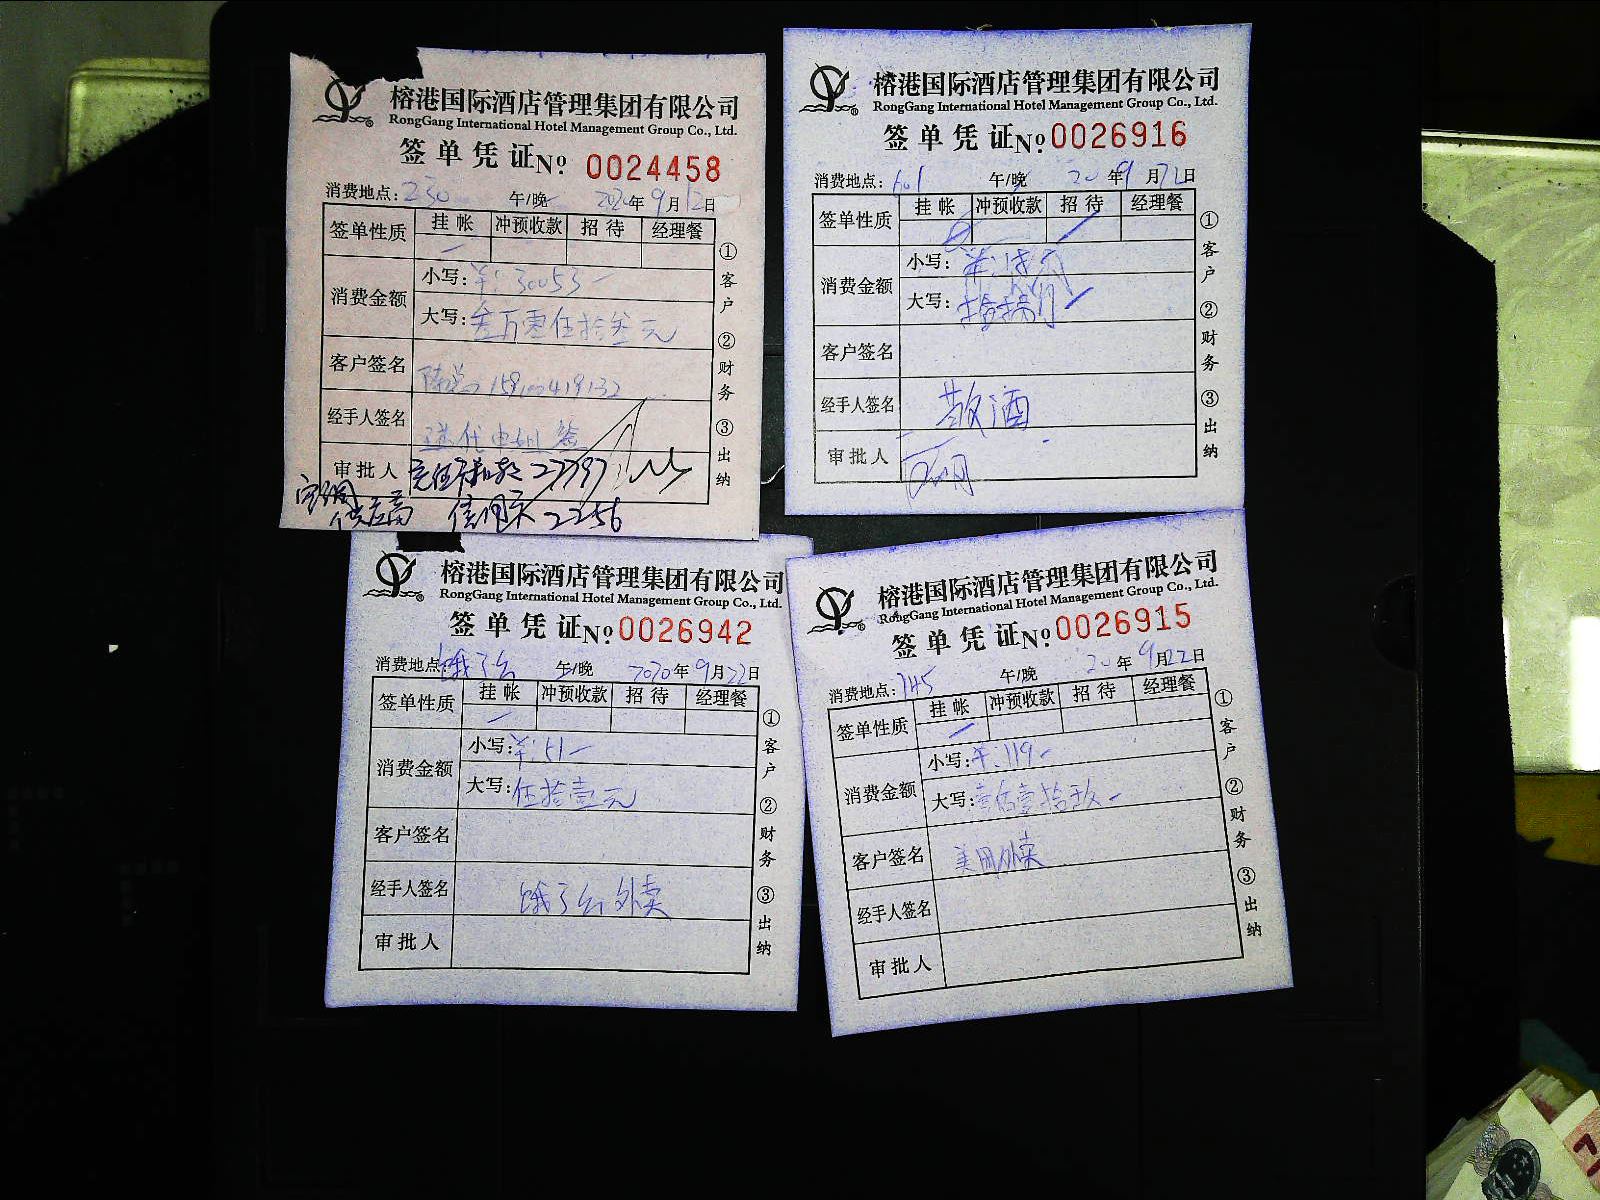 榕港国际酒店管理集团有限公司
RongGang International Hotel Management Group Co., Ltd.
签单凭证 № 0024458
消费地点: 230 午/晚 2020年9月12日
签单性质 挂帐 冲预收款 招待 经理餐
消费金额
小写: ¥:30053-
大写: 叁万零伍拾叁元
客户签名
经手人签名
审批人 27797
供应商 信用 2256
①客户 ②财务 ③出纳
榕港国际酒店管理集团有限公司
RongGang International Hotel Management Group Co., Ltd.
签单凭证 № 0026916
消费地点: 601 午/晚 20年9月22日
签单性质 挂帐 冲预收款 招待 经理餐
消费金额
小写:
大写:
客户签名
经手人签名 散酒
审批人
①客户 ②财务 ③出纳
榕港国际酒店管理集团有限公司
RongGang International Hotel Management Group Co., Ltd.
签单凭证 № 0026942
消费地点: 饿了么 午/晚 2020年9月22日
签单性质 挂帐 冲预收款 招待 经理餐
消费金额
小写: ¥:51-
大写: 伍拾壹元
客户签名
经手人签名 饿了么外卖
审批人
①客户 ②财务 ③出纳
榕港国际酒店管理集团有限公司
RongGang International Hotel Management Group Co., Ltd.
签单凭证 № 0026915
消费地点: 745 午/晚 20年9月22日
签单性质 挂帐 冲预收款 招待 经理餐
消费金额
小写: ¥:119-
大写: 壹佰壹拾玖-
客户签名 美团外卖
经手人签名
审批人
①客户 ②财务 ③出纳